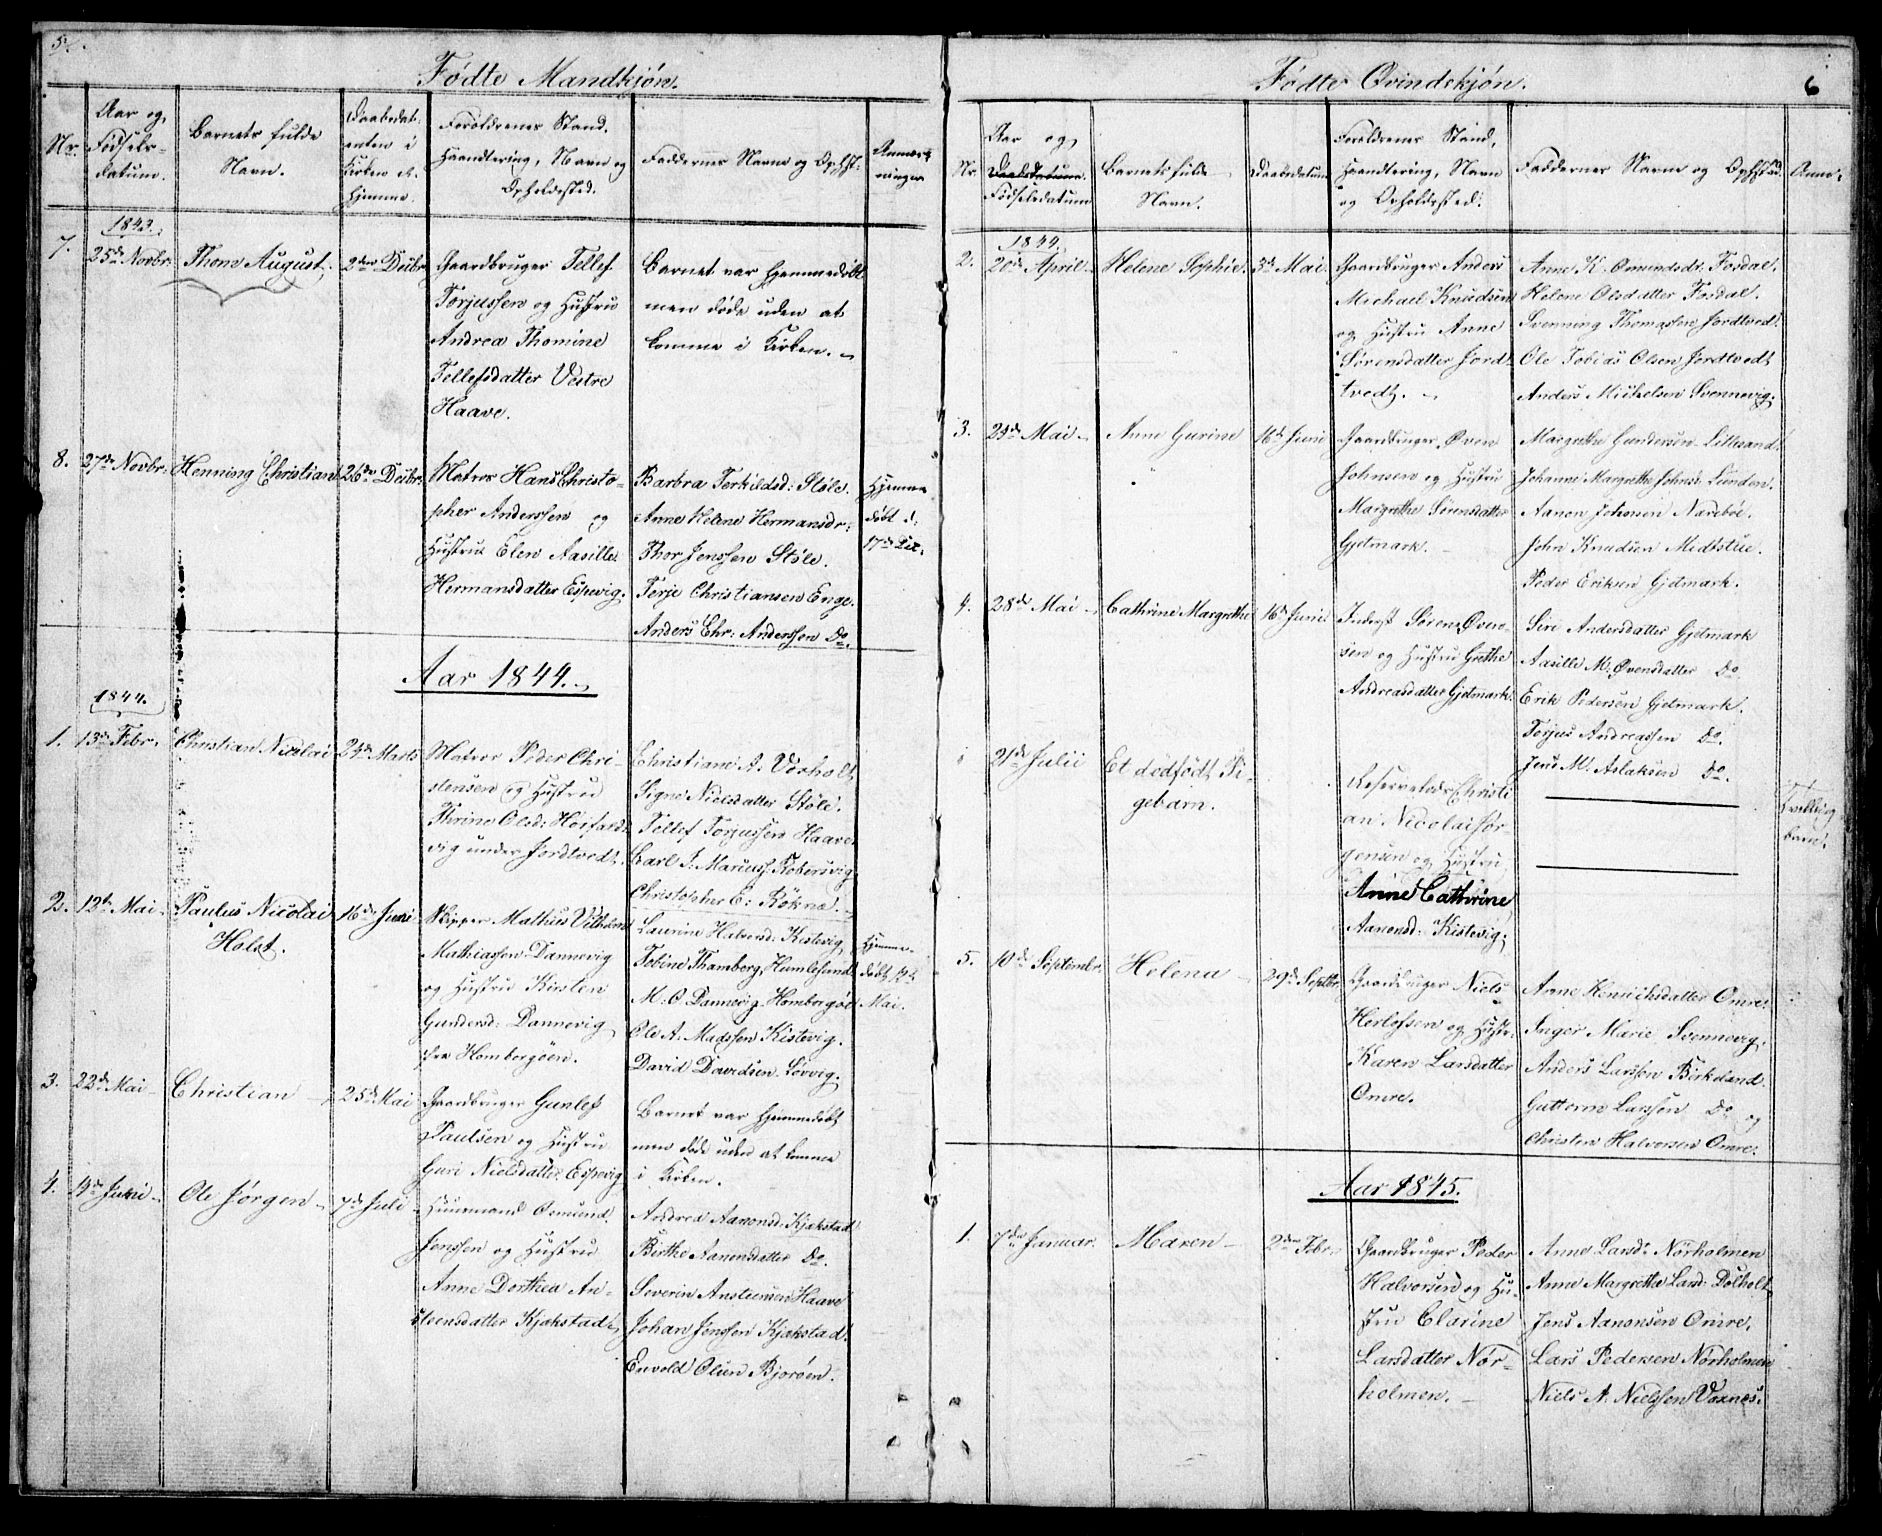 5.
Fødte Mandkjøn.
Nr.
Aar og
Fødsels-
datum.
Barnets fulde
Navn.
Daabsdat-
enten i
Kirken el.
Hjemme.
Forældrenes Stand,
Haandtering, Navn og
Opholdssted.
Faddernes Navne og Ophst:
Anmær-
ninger
1843.
7.
25de Novbr.
Thom August.
2den Decbr
Gaardbruger Tellef
Torjussen og Hustru
Andrea Thomine
Tellefsdatter Vestre
Haave.
Barnet var hjemmedøbt
men døde uden at
komme i Kirken.
8.
27de Novbr:
Henning Christian
26de Decbr.
Matros Hans Christo-
pher Anderssen og
Hustrue Elen Aasille
Hermansdatter Espevig.
Barbra Terkildsd: Støle.
Anne Helene Hermansdr:
Thor Jenssen Støle.
Terje Christiansen Enge.
Anders Chr: Anderssen Do.
Hjemme
døbt d.
17de
Aar 1844.
1844.
1.
13de Febr.
Christian Nicolai
24de Marts
Matros Peder Chri-
stensen og Hustru
Thrine Olsd:
vig under Jordtvedt.
Christiane A. Vesholt.
Signe Nielsdatter Støle.
Tellef Torjussen Haave.
Carl J. Mariuss.
Christopher E:
2.
12te Mai
Paulus Nicolai
Holst.
16de Juni
Skipper Mathias Vilhelm
Mathiassen Dannevig
og Hustru Kirsten
Gundersd: Dannevig
fra Homborgøen.
Laurine Halvorsd: Kistevig
Tobine Thamberg, Humlesund
M. C. Dannevig Homborgøe
Ole A. Madssen Kistevig.
David Davidsen Sørvig.
Hjemme-
døbt
Mai.
3.
22de Mai
Christian
25de Mai
Gaardbruger Gunlef
Paulsen og Hustru
Guri Nielsdatter Espevig
Barnet var hjemmedøbt
men døde uden at komme
i Kirken.
4.
14de Juni
Ole Jørgen
7de Juli
Huusmand Osmund
Jenssen og Hustru
Anne Dorthea An-
steensdatter Kjøkstad
Andrea Aanonsd: Kjøkstad
Birthe Aanonsdatter Do.
Severin Ansteensen Haave
Johan Jenssen Kjøkstad.
Envold Olsen Bjorøen.
6
Fødte Qvindekjøn.
Nr.
Aar og
Daabsdatum.
Fødselsdatum
Barnets fulde
Navn.
Daabsdatum
Forældrenes Stand,
Haandtering, Navn
og Opholdssted.
Faddernes Navne og Ophstd.
Anm:
1844.
2.
20de April
Helene Sophie.
3de Mai
Gaardbruger Anders
Michael Knudsen
og Hustru Anne
Sørensdatter Jord-
tvedt.
Anne K. Omundsdr. Fosdal.
Helene Olsdatter Fosdal.
Svenning Thomassen Jordtvedt
Ole Tobias Olsen Jordtvedt
Anders Michelsen Svennevig.
3.
24de Mai
Anne Gurine
16de Juni
Gaardbruger Øven
Johnsen og Hustru
Margrethe Sørensdatter
Gjetmark.
Margrethe Gundersen Littesand
Johanne Margrethe Johnsd. Lunden.
Aanon Johnsen Narebøe.
John Knudsen Midtstue.
Peder Eriksen Gjetmark.
4.
28de Mai
Cathrine Margrethe
16de Juni
Inderst Søren Øven-
sen og Hustru Grethe
Andreasdatter Gjetmark
Siri Andersdatter Gjetmark
Aasille M: Øvensdatter Do
Erik Pedersen Gjetmark.
Torjus Andreassen Do.
Jens M. Aslaksen Do.
21de Julii
Et dødfødt Pi-
gebarn.
Reservelods Christi
an Nicolai Jør
gensen og Hustru
Anne Cathrine
Aanonsd: Kistevig.
Tvilling
barn.
5.
10de Septembr.
Helena
29de Septbr.
Gaardbruger Niels
Herlofsen og Hustr.
Karen Larsdatter
Omre.
Anne Henrichsdatter Omre.
Inger Marie Svennevig.
Anders Larssen Birkeland.
Guttorm Larssen Do og
Christen Halvorsen Omre.
Aar 1845.
1.
7de Januar
Maren
2den Febr.
Gaardbruger Peder
Halvorsen og Hu-
stru Clarine
Larsdatter Nør-
holmen.
Anne Larsd: Nørholmen
Anne Margrethe Larsd: Dolholt
Jens Aanonsen Omre.
Lars Pedersen Nørholmen
Niels A. Nielssen Vaxnes.